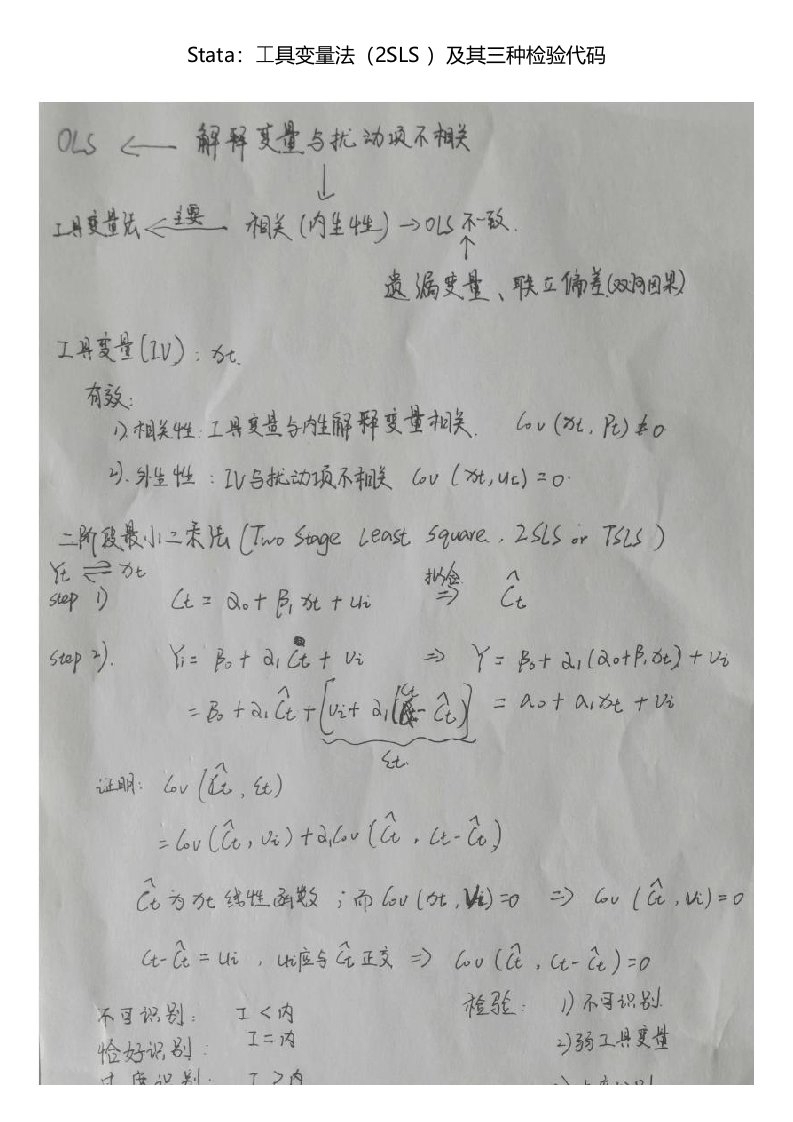 Stata：工具变量法（2SLS ）及其三种检验代码
OLS ← 解释变量与扰动项不相关
↓
工具变量法 ← 主要 相关(内生性) → OLS 不一致.
↑
遗漏变量、联立偏差(双向因果)
工具变量(IV): xt.
有效:
1).相关性:工具变量与内生解释变量相关. Cov(xt, Pt) ≠ 0
2).外生性:IV与扰动项不相关 Cov(xt,ut)=0.
二阶段最小二乘法(Two Stage Least Square. 2SLS or TSLS)
Yt ⇌ xt
step 1) Ct = α0 + β1 xt + ui 拟合 ⇒ Ĉt
step 2). Yi = β0 + α1 Ct + Vi ⇒ Y = β0 + α1(α0+β1xt) + Vi
= β0 + α1Ĉt + [Vi + α1(Ct - Ĉt)] = a0 + a1xt + Vi
εt
证明: Cov(Ĉt, εt)
= Cov(Ĉt, Vi) + α1Cov(Ĉt, Ct-Ĉt)
Ĉt 为 xt 线性函数 ;而 Cov(xt, Vi)=0 ⇒ Cov(Ĉt, Vi)=0
Ct-Ĉt = ui , ui应与Ĉt正交 ⇒ Cov(Ĉt, Ct-Ĉt)=0
不可识别: I < 内 检验: 1) 不可识别.
恰好识别: I = 内 2)弱工具变量
过度识别: I > 内